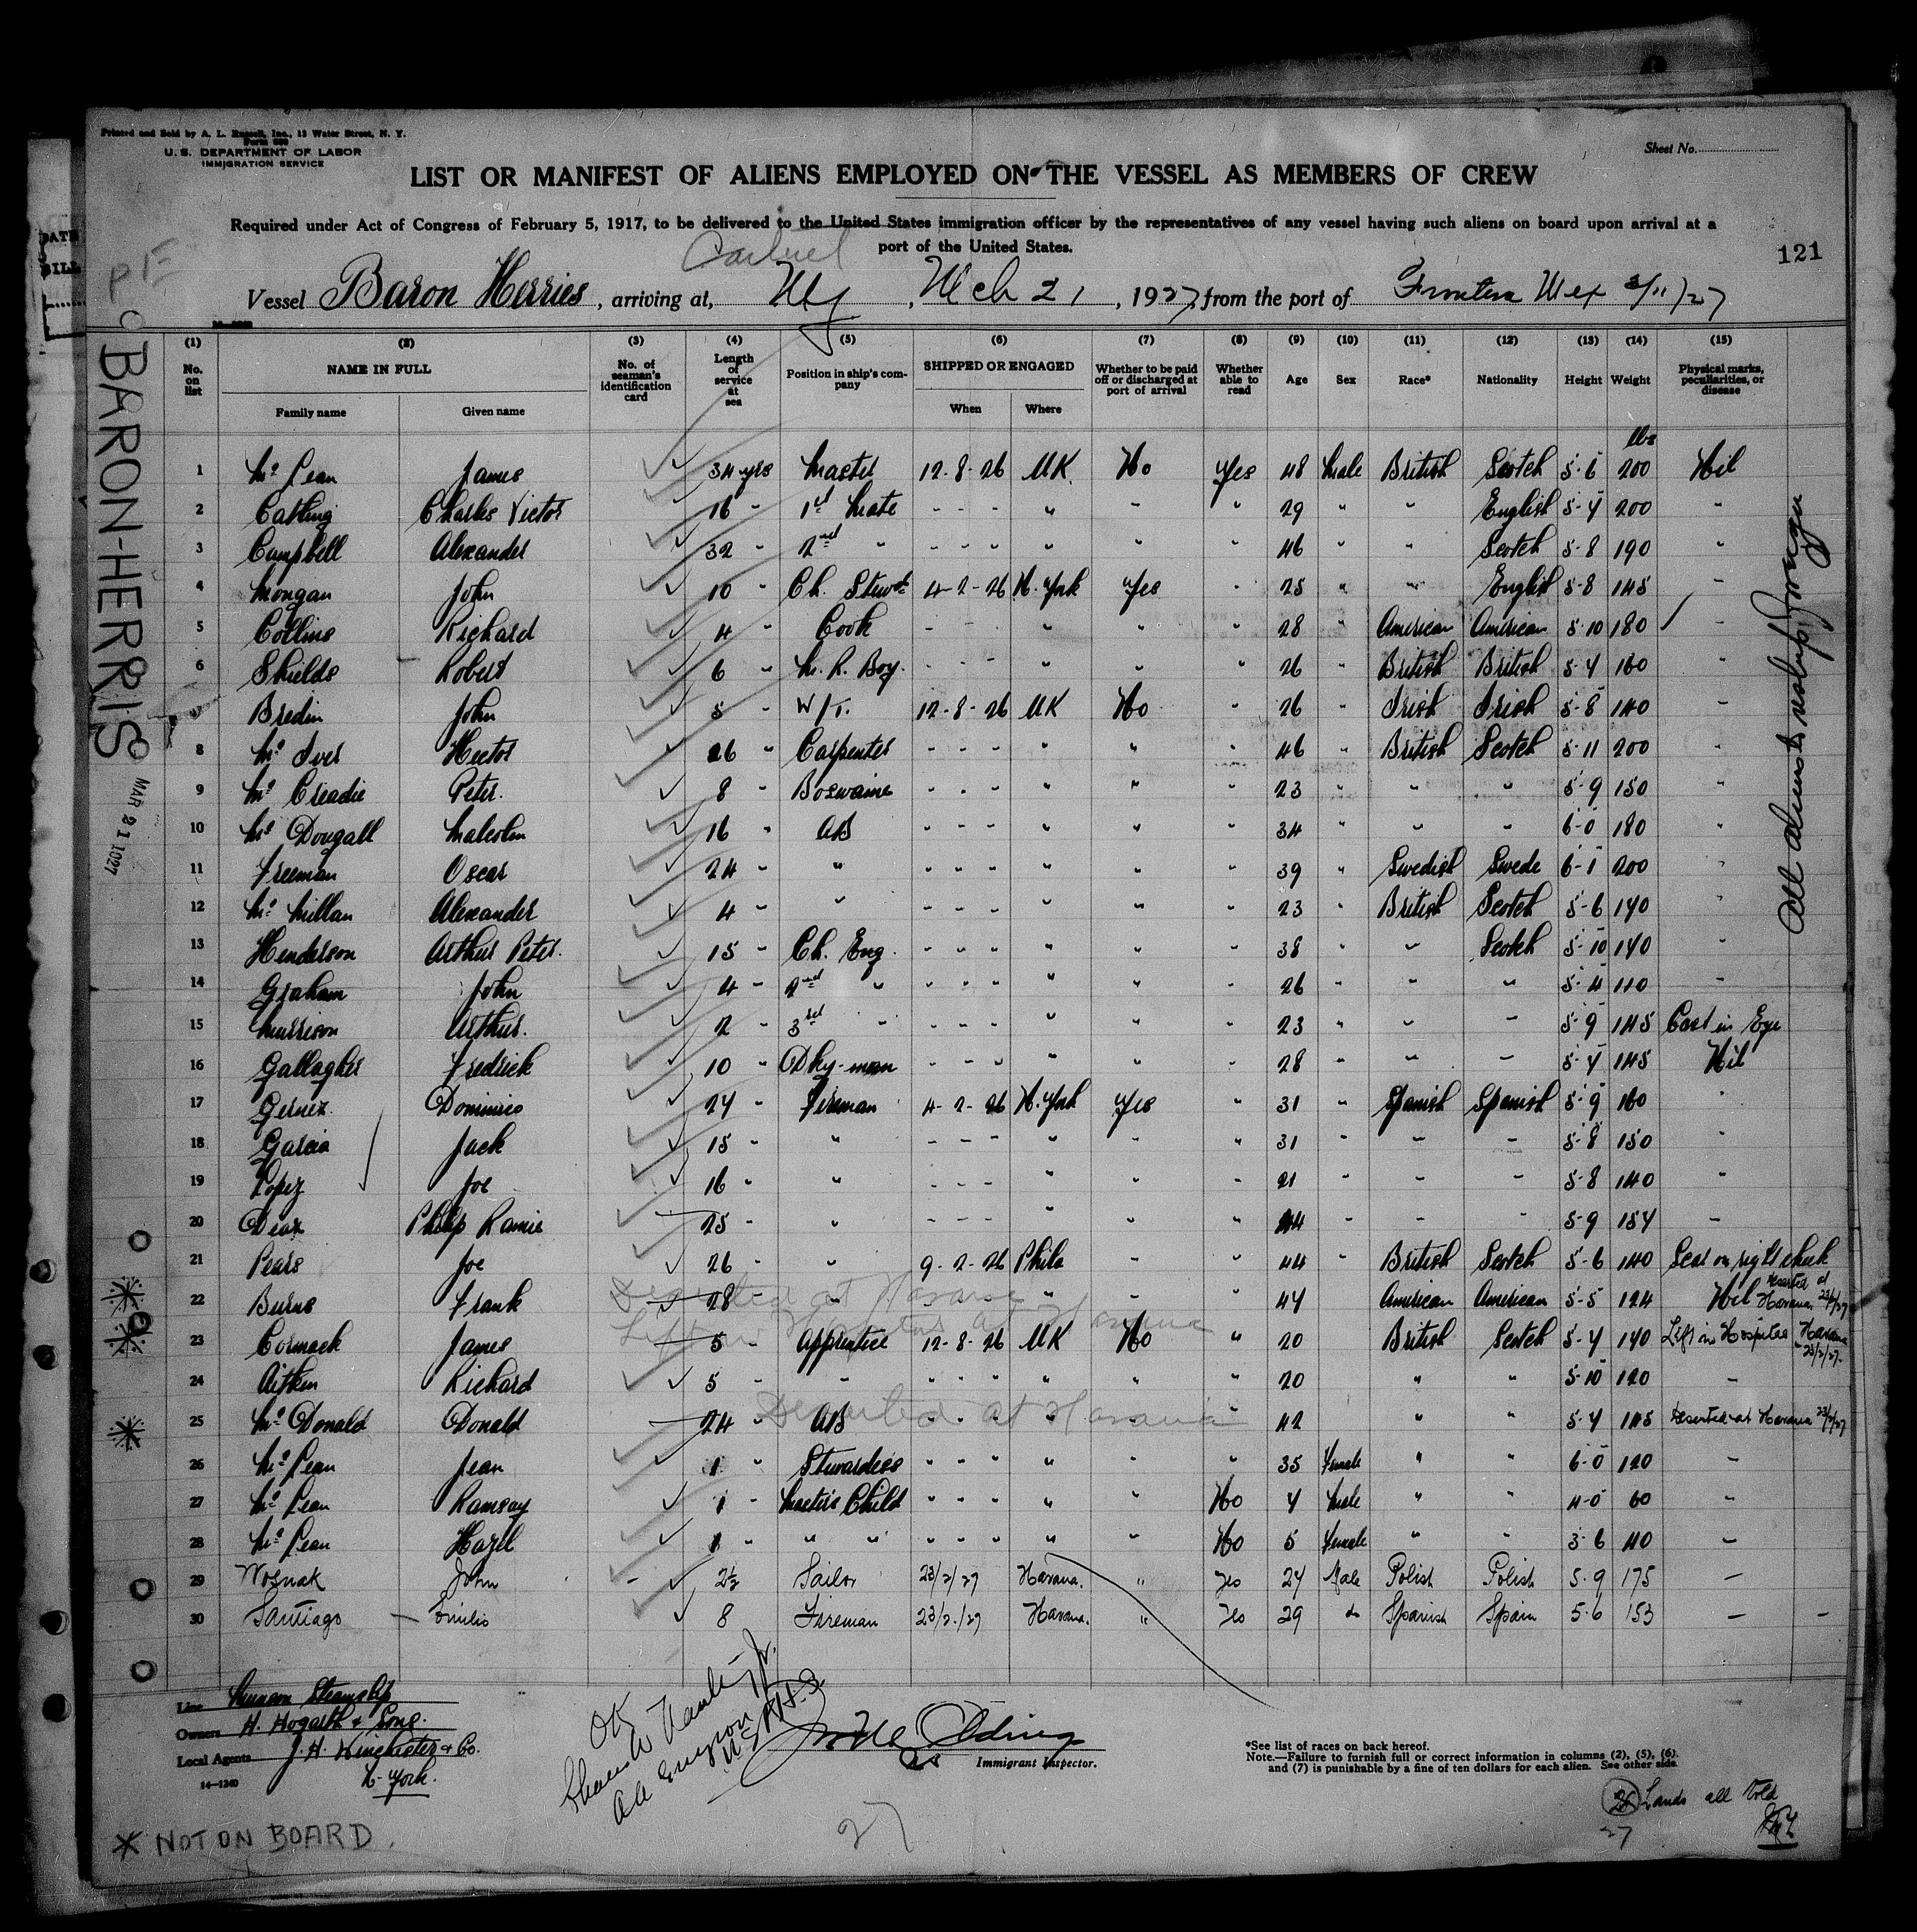 Printed and Sold by A. L. Russell, Inc., 13 Water Street, N. Y.
U. S. DEPARTMENT OF LABOR
IMMIGRATION SERVICE
Sheet No.
LIST OR MANIFEST OF ALIENS EMPLOYED ON THE VESSEL AS MEMBERS OF CREW
Required under Act of Congress of February 5, 1917, to be delivered to the United States immigration officer by the representatives of any vessel having such aliens on board upon arrival at a
port of the United States.
121
Vessel Baron Herries, arriving at, NY, Mch 21, 1927, from the port of Frontera Mex 3/11/27
BARON-HERRIS
MAR 21 1927
(1) (2) (3) (4) (5) (6) (7) (8) (9) (10) (11) (12) (13) (14) (15)
No. on list NAME IN FULL No. of seaman's identification card Length of service at sea Position in ship's company SHIPPED OR ENGAGED Whether to be paid off or discharged at port of arrival Whether able to read Age Sex Race* Nationality Height Weight Physical marks, peculiarities, or disease
Family name Given name When Where
lbs
1 Mc Lean James 34 yrs Master 12-8-26 UK. No Yes 48 Male British Scotch 5-6 200 Nil
2 Catling Charles Victor 16 " 1st Mate - - - " " " 29 " " English 5-4 200 "
3 Campbell Alexander 32 " 2nd " - - - " " " 46 " " Scotch 5-8 190 "
4 Mongan John 10 " Ch. Stewd 4-2-26 N. York Yes " 25 " " English 5-8 145 "
5 Collins Richard 4 " Cook - - - " " " 28 " American American 5-10 180 "
6 Shields Robert 6 " M. R. Boy. - - - " " " 26 " British British 5-4 160 "
7 Bredin John 5 " W/T. 12-8-26 UK No " 26 " Irish Irish 5-8 140 "
8 Mc Iver Hector 26 " Carpenter - - - " " " 46 " British Scotch 5-11 200 "
9 Mc Creadie Peter. 8 " Boswaine - - - " " " 23 " " " 5-9 150 "
10 Mc Dougall Malcolm 16 " AB - - - " " " 34 " " " 6-0 180 "
11 Freeman Oscar 24 " " - - - " " " 39 " Swedish Swede 6-1 200 "
12 Mc Millan Alexander 4 " " - - - " " " 23 " British Scotch 5-6 140 "
13 Henderson Arthur Peter. 15 " Ch. Eng. - - - " " " 38 " " Scotch 5-10 140 "
14 Graham John 4 " 2nd " - - - " " " 26 " " " 5-4 110 "
15 Murrison Arthur. 2 " 3rd " - - - " " " 23 " " " 5-9 145 Cast in Eye
16 Gallagher Fredrick 10 " Dky-man - - - " " " 28 " " " 5-4 145 Nil
17 Gernez Dominico 24 " Fireman 4-2-26 N. York Yes " 31 " Spanish Spanish 5-9 160 "
18 Garcia Jack 15 " " - - - " " " 31 " " " 5-8 150 "
19 Lopez Joe 16 " " - - - " " " 21 " " " 5-8 140 "
20 Diaz Philip Ramie 25 " " - - - " " " 44 " " " 5-9 154 -
21 Pears Joe 26 " " 9-2-26 Phila " " 44 " British Scotch 5-6 140 Scar on right cheek
22 Burns Frank 28 " " " " " " " " 44 American American 5-5 124 Nil Deserted at Havana 23/2/27
Deserted at Havana
Left in Hospital at Havana
23 Cormack James 5 " Apprentice 12-8-26 UK No " 20 British Scotch 5-4 140 Left in Hospital Havana 23/2/27
24 Aitken Richard 5 " " " " " " " " 20 " " 5-10 120 -
25 Mc Donald Donald 24 " AB " " " " " " 42 " " 5-4 145 Deserted at Havana 23/2/27
Deserted at Havana
26 Mc Lean Jean 1 " Stewardess " " " " " " 35 Female " " 6-0 120 -
27 Mc Lean Ramsay 1 " Master's Child " " " " " No 4 Male " " 4-0 60 -
28 Mc Lean Hazel 1 " " " " " " " " No 5 Female " " 3-6 40 -
29 Wosnak John 2½ Sailor 23/2/27 Havana. " Yes 24 Male Polish Polish 5-9 175 -
30 Santiago Emilio 8 Fireman 23/2/27 Havana. " Yes 29 do Spanish Spain 5-6 153 -
Line Munson Steamship
Owners H. Hogarth & Sons.
Local Agents J. H. Winchester & Co.
N. York.
14—1240
OK
Immigrant Inspector.
*See list of races on back hereof.
Note.—Failure to furnish full or correct information in columns (2), (5), (6),
and (7) is punishable by a fine of ten dollars for each alien. See other side.
Lands all told
27
27
* NOT ON BOARD.